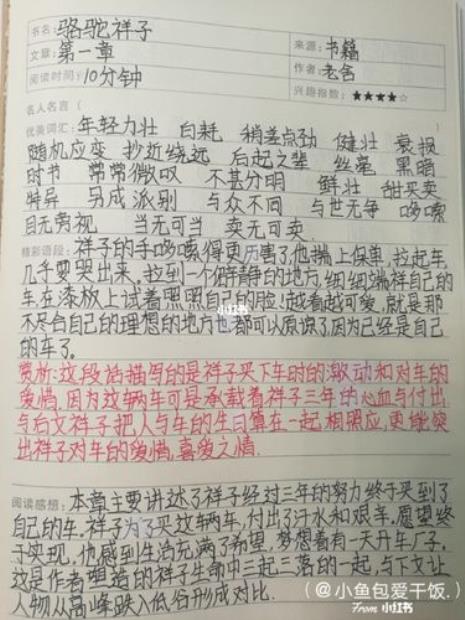 书名: 骆驼祥子
文章: 第一章
来源: 书籍
阅读时间: 10分钟
作者: 老舍
兴趣指数: ★★★★☆
名人名言 (
优美词汇: 年轻力壮 白耗 稍差点劲 健壮 衰损
随机应变 抄近绕远 后起之辈 丝毫 黑暗
时节 常常微叹 不甚分明 鲜壮 甜买卖
特异 另成派别 与众不同 与世无争 哆嗦
目无旁视 当无可当 卖无可卖
精彩语段: 祥子的手哆嗦得更厉害了,他揣上保单,拉起车,
几乎要哭出来。拉到一个僻静的地方,细细端祥自己的
车,在漆板上试着照照自己的脸!越看越可爱,就是那
不尽合自己的理想的地方也都可以原谅了因为已经是自己
的车了。
小红书
赏析:这段话描写的是祥子买下车时的激动和对车的
爱惜.因为这辆车可是承载着祥子三年的心血与付出,
与后文祥子把人与车的生日算在一起,相照应,更能突
出祥子对车的爱惜,喜爱之情.
阅读感想: 本章主要讲述了祥子经过三年的努力终于买到了
自己的车。祥子为了买这辆车,付出了汗水和艰辛,愿望终
于实现。他感到生活充满了希望,梦想着有一天开车厂子。
这是作者塑造的祥子生命中三起三落的一起,与下文让
人物从高峰跌入低谷形成对比.
(@小鱼包爱干饭.)
From 小红书